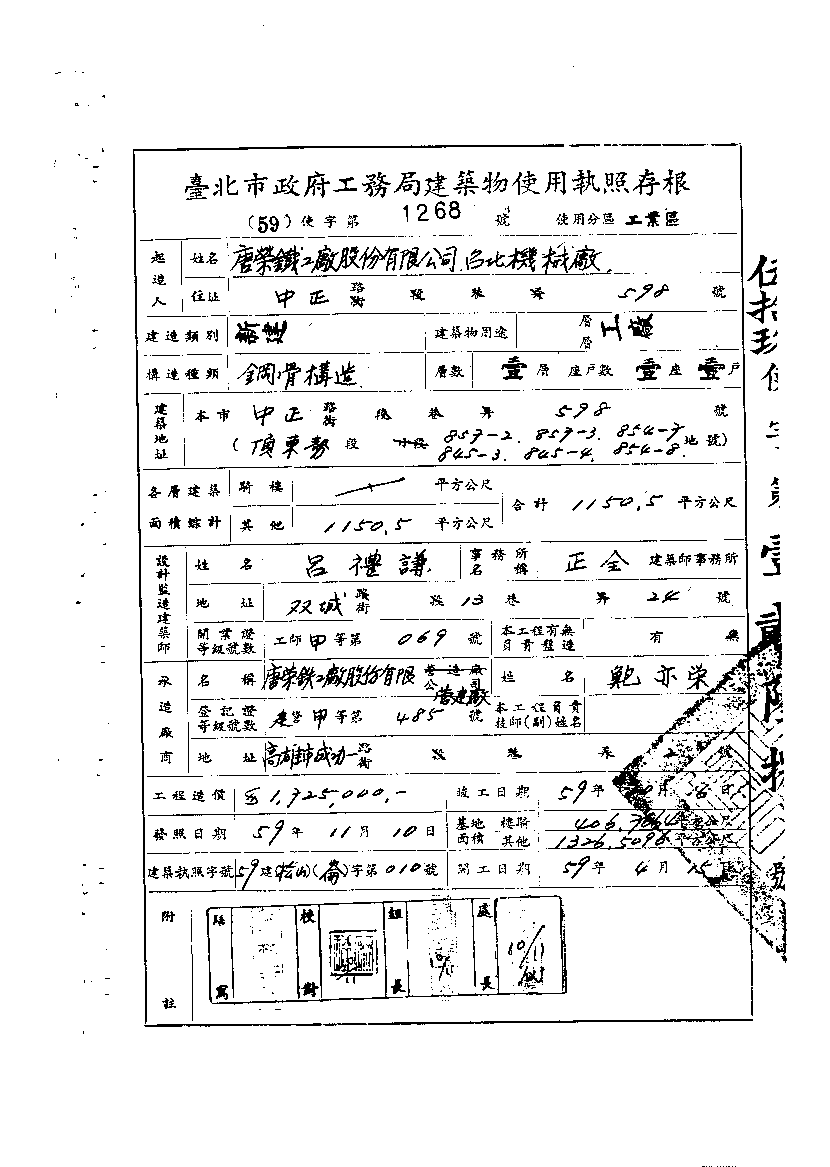 臺北市政府工務局建築物使用執照存根
(59)使字第 1268 號 使用分區 工業區
起造人 姓名 唐榮鐵工廠股份有限公司台北機械廠
住址 中正 路街 段 巷 弄 598 號
建造類別 建築物用途 層層 工廠
構造種類 鋼骨構造 層數 壹層 座戶數 壹座壹戶
建築地址 本市 中正 路街 段 巷 弄 598 號
(頂東勢 段 小段 857-2. 857-3. 854-7 地號)
845-3. 845-4. 854-8.
各層建築面積綜計 騎樓 平方公尺 合計 1150.5 平方公尺
其他 1150.5 平方公尺
設計監造建築師 姓名 呂禮謙 事務所名稱 正全 建築師事務所
地址 双城 路街 段 13 巷 弄 24 號
開業證等級號數 工師甲等第 069 號 本工程有無負責監造 有 無
承造廠商 名稱 唐榮鉄工廠股份有限 營造廠公司 營建廠 姓名 鮑亦荣
登記證等級號數 甲等第 485 號 本工程負責技師(副)姓名
地址 高雄市成功一 路街 段 巷 弄 2 號
工程造價 1,725,000,- 竣工日期 59年 月 日
發照日期 59年 11月 10日 基地面積 騎樓 平方公尺
其他 1326.5096 平方公尺
建築執照字號 59建(松山)(崙)字第010號 開工日期 59年 4月 15日
附註
謄寫 校對 組長 處長
10/11 10/11
伍拾玖使字第壹貳陸捌號